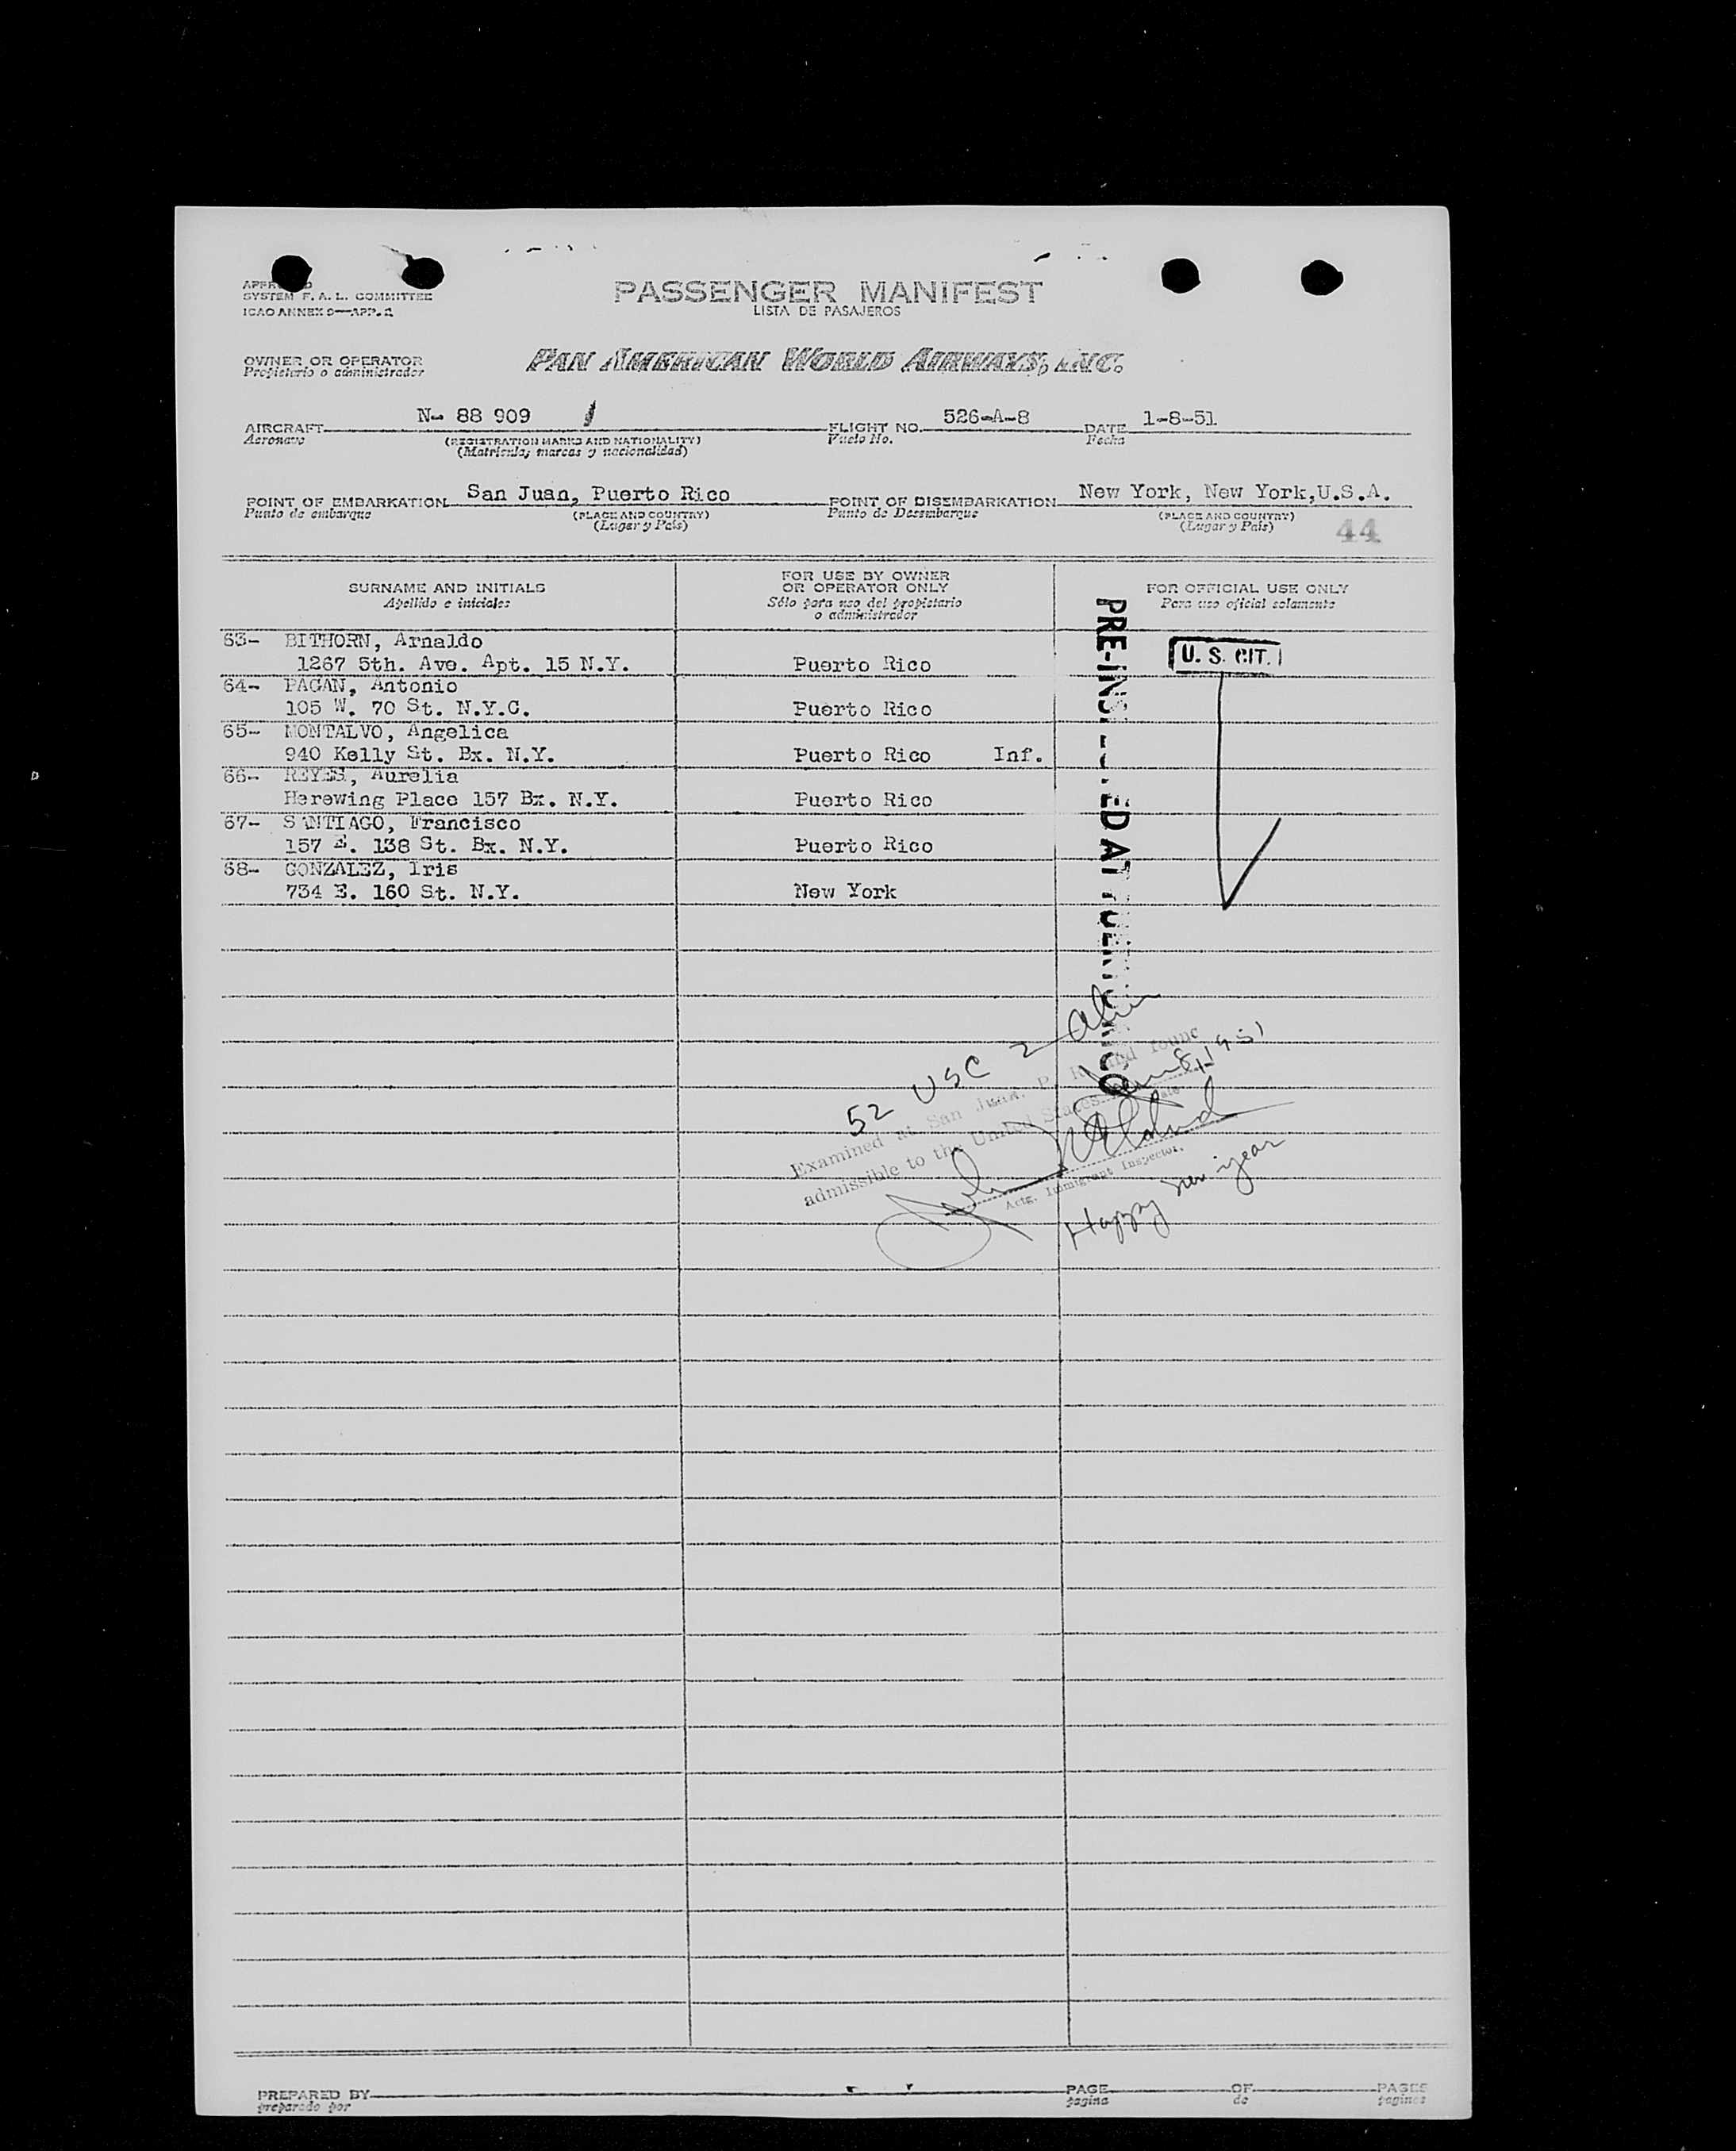 SYSTEM F. A. L. COMMITTEE
ICAO ANNEX 9—APP. 2
PASSENGER MANIFEST
LISTA DE PASAJEROS
OWNER OR OPERATOR
Propietario o administrador
PAN AMERICAN WORLD AIRWAYS, INC.
AIRCRAFT N- 88 909
Aeronave
(REGISTRATION MARKS AND NATIONALITY)
(Matricula, marcas y nacionalidad)
FLIGHT NO. 526-A-8
Vuelo No.
DATE 1-8-51
Fecha
POINT OF EMBARKATION San Juan, Puerto Rico
Punto de embarque
(PLACE AND COUNTRY)
(Lugar y País)
POINT OF DISEMBARKATION New York, New York,U.S.A.
Punto de Desembarque
(PLACE AND COUNTRY)
(Lugar y País)
44
SURNAME AND INITIALS
Apellido e iniciales
FOR USE BY OWNER
OR OPERATOR ONLY
Sólo para uso del propietario
o administrador
FOR OFFICIAL USE ONLY
Para uso oficial solamente
63- BITHORN, Arnaldo
1267 5th. Ave. Apt. 15 N.Y. Puerto Rico
U. S. CIT.
64- PAGAN, Antonio
105 W. 70 St. N.Y.C. Puerto Rico
65- MONTALVO, Angelica
940 Kelly St. Bx. N.Y. Puerto Rico Inf.
66- REYES, Aurelia
Herewing Place 157 Bx. N.Y. Puerto Rico
67- SANTIAGO, Francisco
157 E. 138 St. Bx. N.Y. Puerto Rico
68- GONZALEZ, Iris
734 E. 160 St. N.Y. New York
52 USC 2 alien
Examined at San Juan, P. R. and found
admissible to the United States Jan 8, 1951
Actg. Immigrant Inspector.
Happy new year
PREPARED BY
preparado por
PAGE
pagina
OF
de
PAGES
paginas